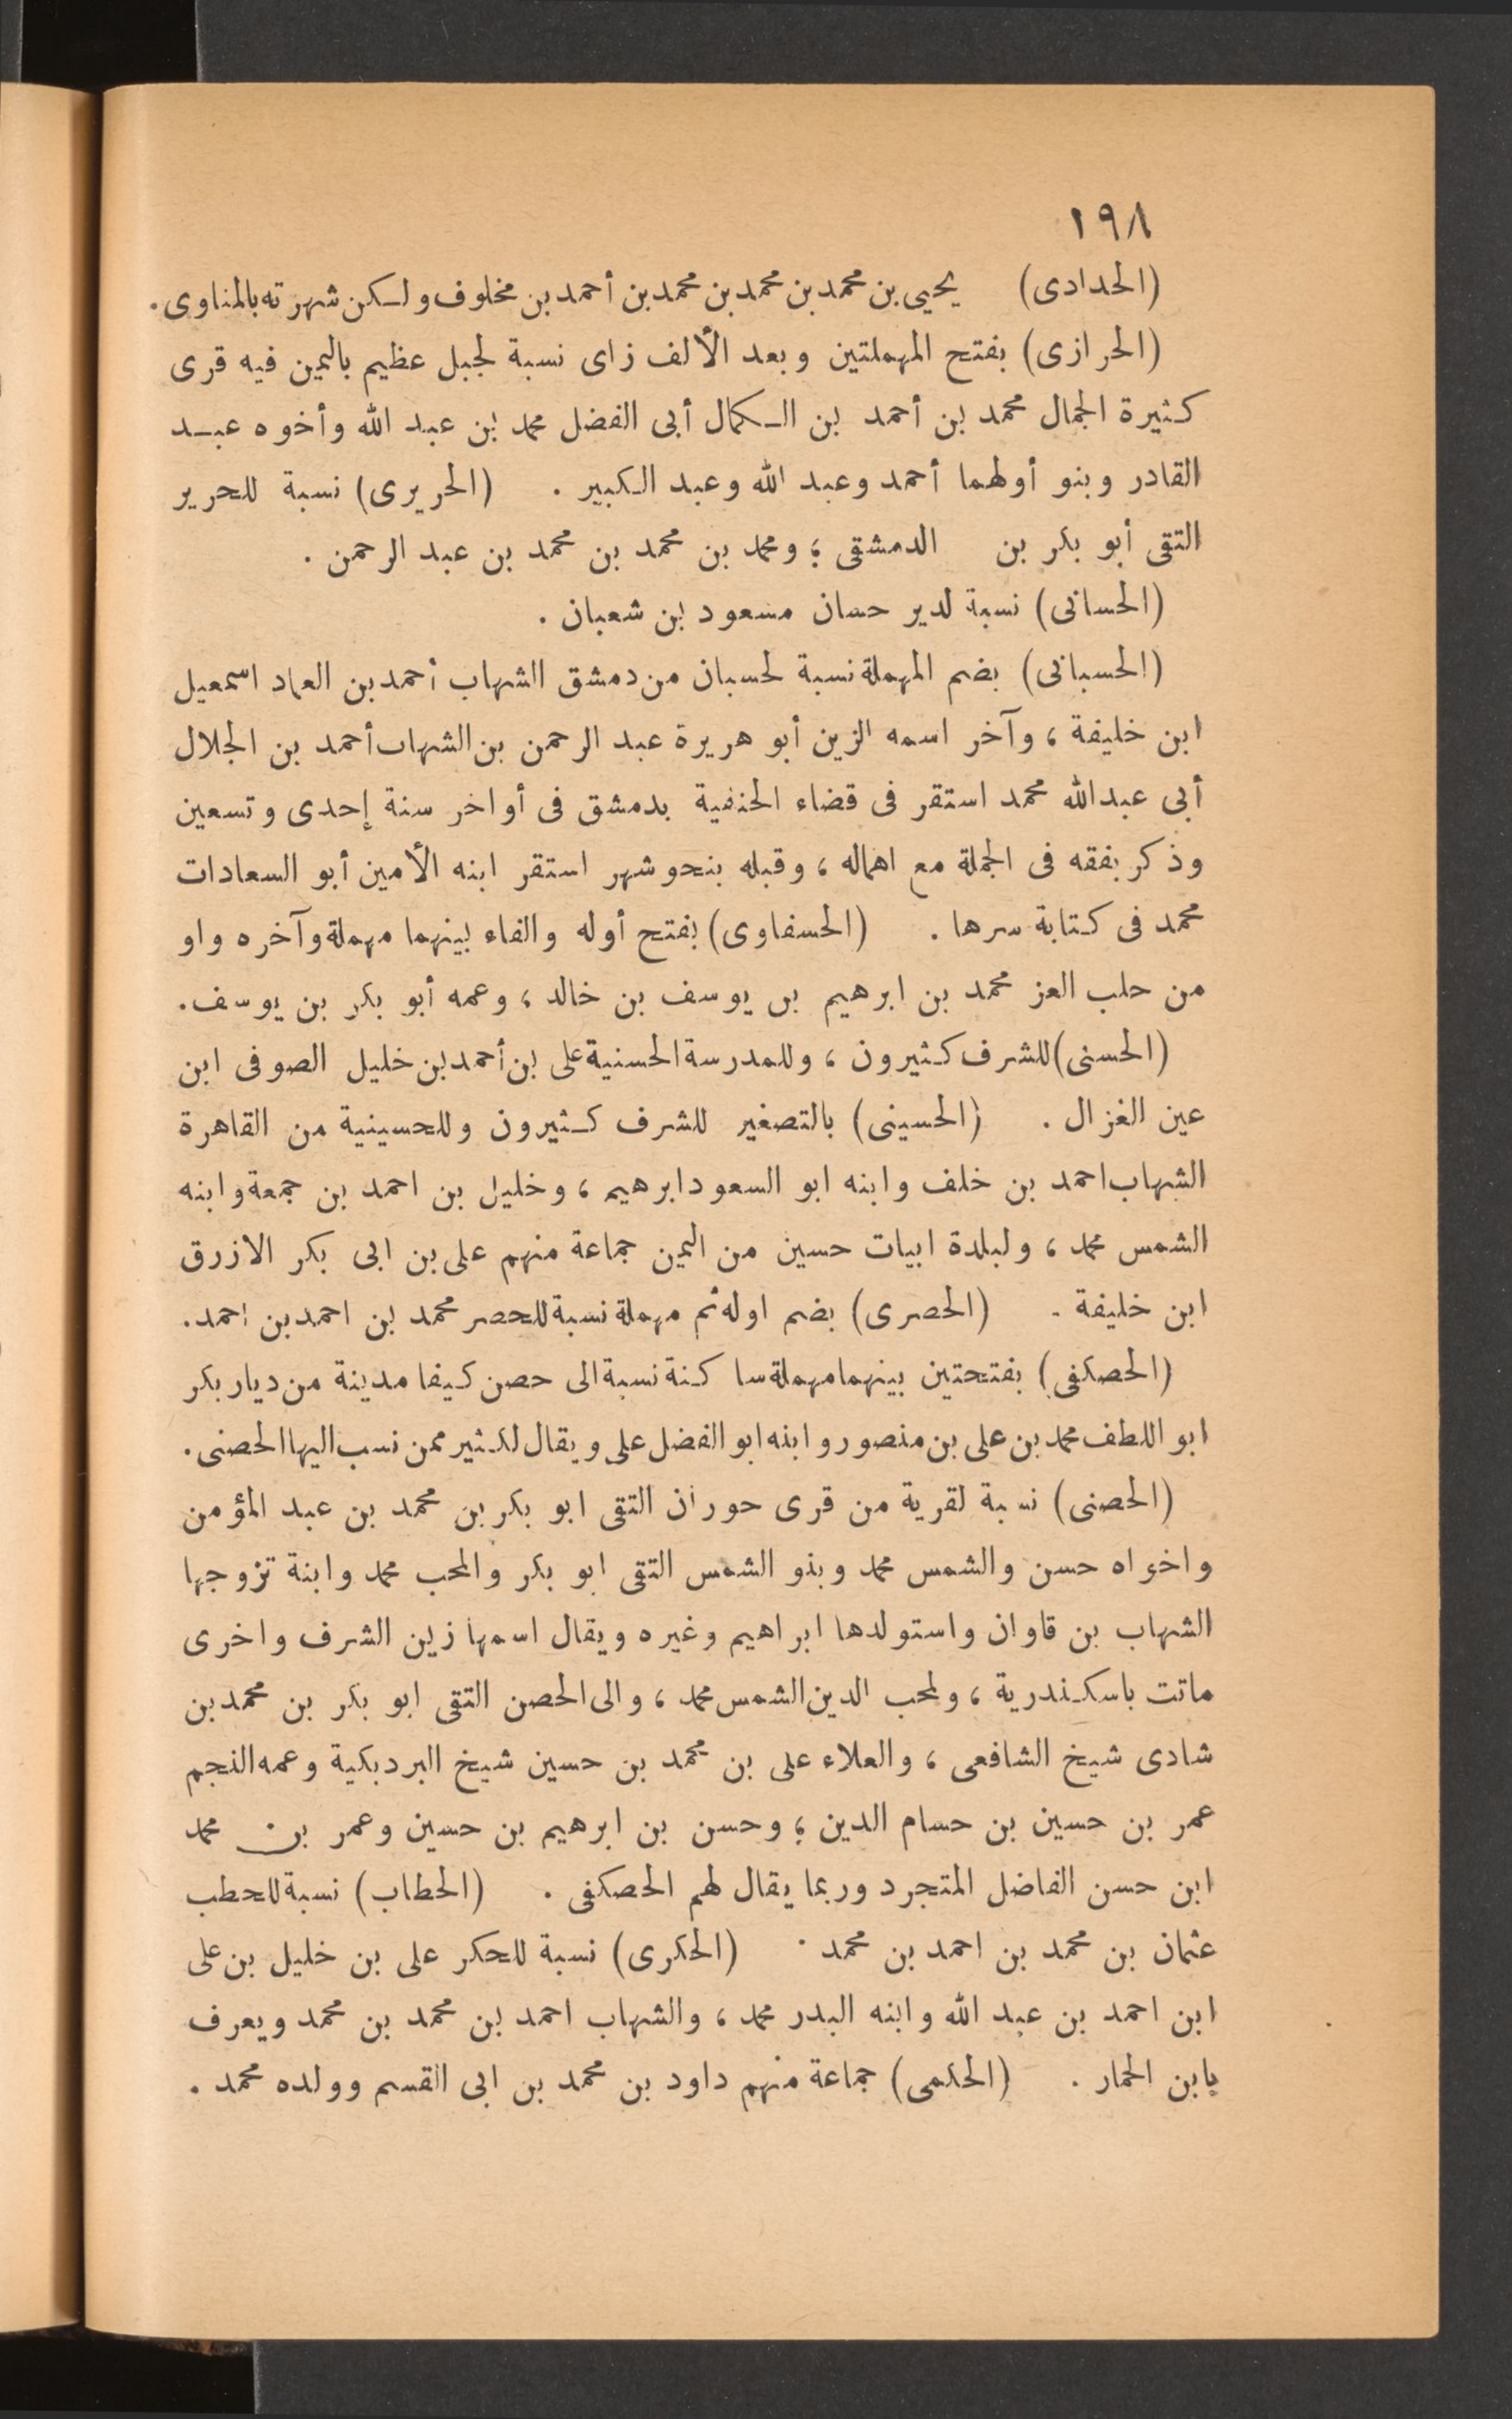 ١٩٨
(الحدادى) يحيى بن محمد بن محمد بن محمد بن أحمد بن مخلوف ولكن شهرته بالمناوى .
(الحرازى) بفتح المهملتين وبعد الألف زاى نسبة لجبل عظيم باليمن فيه قرى
كثيرة الجمال محمد بن أحمد بن الكمال أبى الفضل محمد بن عبد الله وأخوه عبد
القادر وبنو أولهما أحمد وعبد الله وعبد الكبير . (الحريرى) نسبة للحرير
التقى أبو بكر بن الدمشقى ؛ ومحمد بن محمد بن محمد بن عبد الرحمن .
(الحسانى) نسبة لدير حسان مسعود بن شعبان .
(الحسبانى) بضم المهملة نسبة لحسبان من دمشق الشهاب أحمد بن العماد اسمعيل
ابن خليفة ، وآخر اسمه الزين أبو هريرة عبد الرحمن بن الشهاب أحمد بن الجلال
أبى عبد الله محمد استقر فى قضاء الحنفية بدمشق فى أواخر سنة إحدى وتسعين
وذكر بفقه فى الجملة مع اهماله ، وقبله بنحو شهر استقر ابنه الأمين أبو السعادات
محمد فى كتابة سرها . (الحسفاوى) بفتح أوله والفاء بينهما مهملة وآخره واو
من حلب العز محمد بن ابرهيم بن يوسف بن خالد ، وعمه أبو بكر بن يوسف .
(الحسنى) للشرف كثيرون ، وللمدرسة الحسنية على بن أحمد بن خليل الصوفى ابن
عين الغزال . (الحسينى) بالتصغير للشرف كثيرون وللحسينية من القاهرة
الشهاب احمد بن خلف وابنه ابو السعود ابرهيم ، وخليل بن احمد بن جمعة وابنه
الشمس محمد ، ولبلدة ابيات حسين من اليمن جماعة منهم على بن ابى بكر الازرق
ابن خليفة . (الحصرى) بضم اوله ثم مهملة نسبة للحصر محمد بن احمد بن احمد .
(الحصكفى) بفتحتين بينهما مهملة ساكنة نسبة الى حصن كيفا مدينة من ديار بكر
ابو اللطف محمد بن على بن منصور وابنه ابو الفضل على ويقال لكثير ممن نسب اليها الحصنى .
(الحصنى) نسبة لقرية من قرى حوران التقى ابو بكر بن محمد بن عبد المؤمن
واخواه حسن والشمس محمد وبنو الشمس التقى ابو بكر والمحب محمد وابنة تزوجها
الشهاب بن قاوان واستولدها ابراهيم وغيره ويقال اسمها زين الشرف واخرى
ماتت باسكندرية ، ولمحب الدين الشمس محمد ، والى الحصن التقى ابو بكر بن محمد بن
شادى شيخ الشافعى ، والعلاء على بن محمد بن حسين شيخ البردبكية وعمه النجم
عمر بن حسين بن حسام الدين ؛ وحسن بن ابرهيم بن حسين وعمر بن محمد
ابن حسن الفاضل المتجرد وربما يقال لهم الحصكفى . (الحطاب) نسبة للحطب
عثمان بن محمد بن احمد بن محمد . (الحكرى) نسبة للحكر على بن خليل بن على
ابن احمد بن عبد الله وابنه البدر محمد ، والشهاب احمد بن محمد بن محمد ويعرف
بابن الحمار . (الحكمى) جماعة منهم داود بن محمد بن ابى القسم وولده محمد .